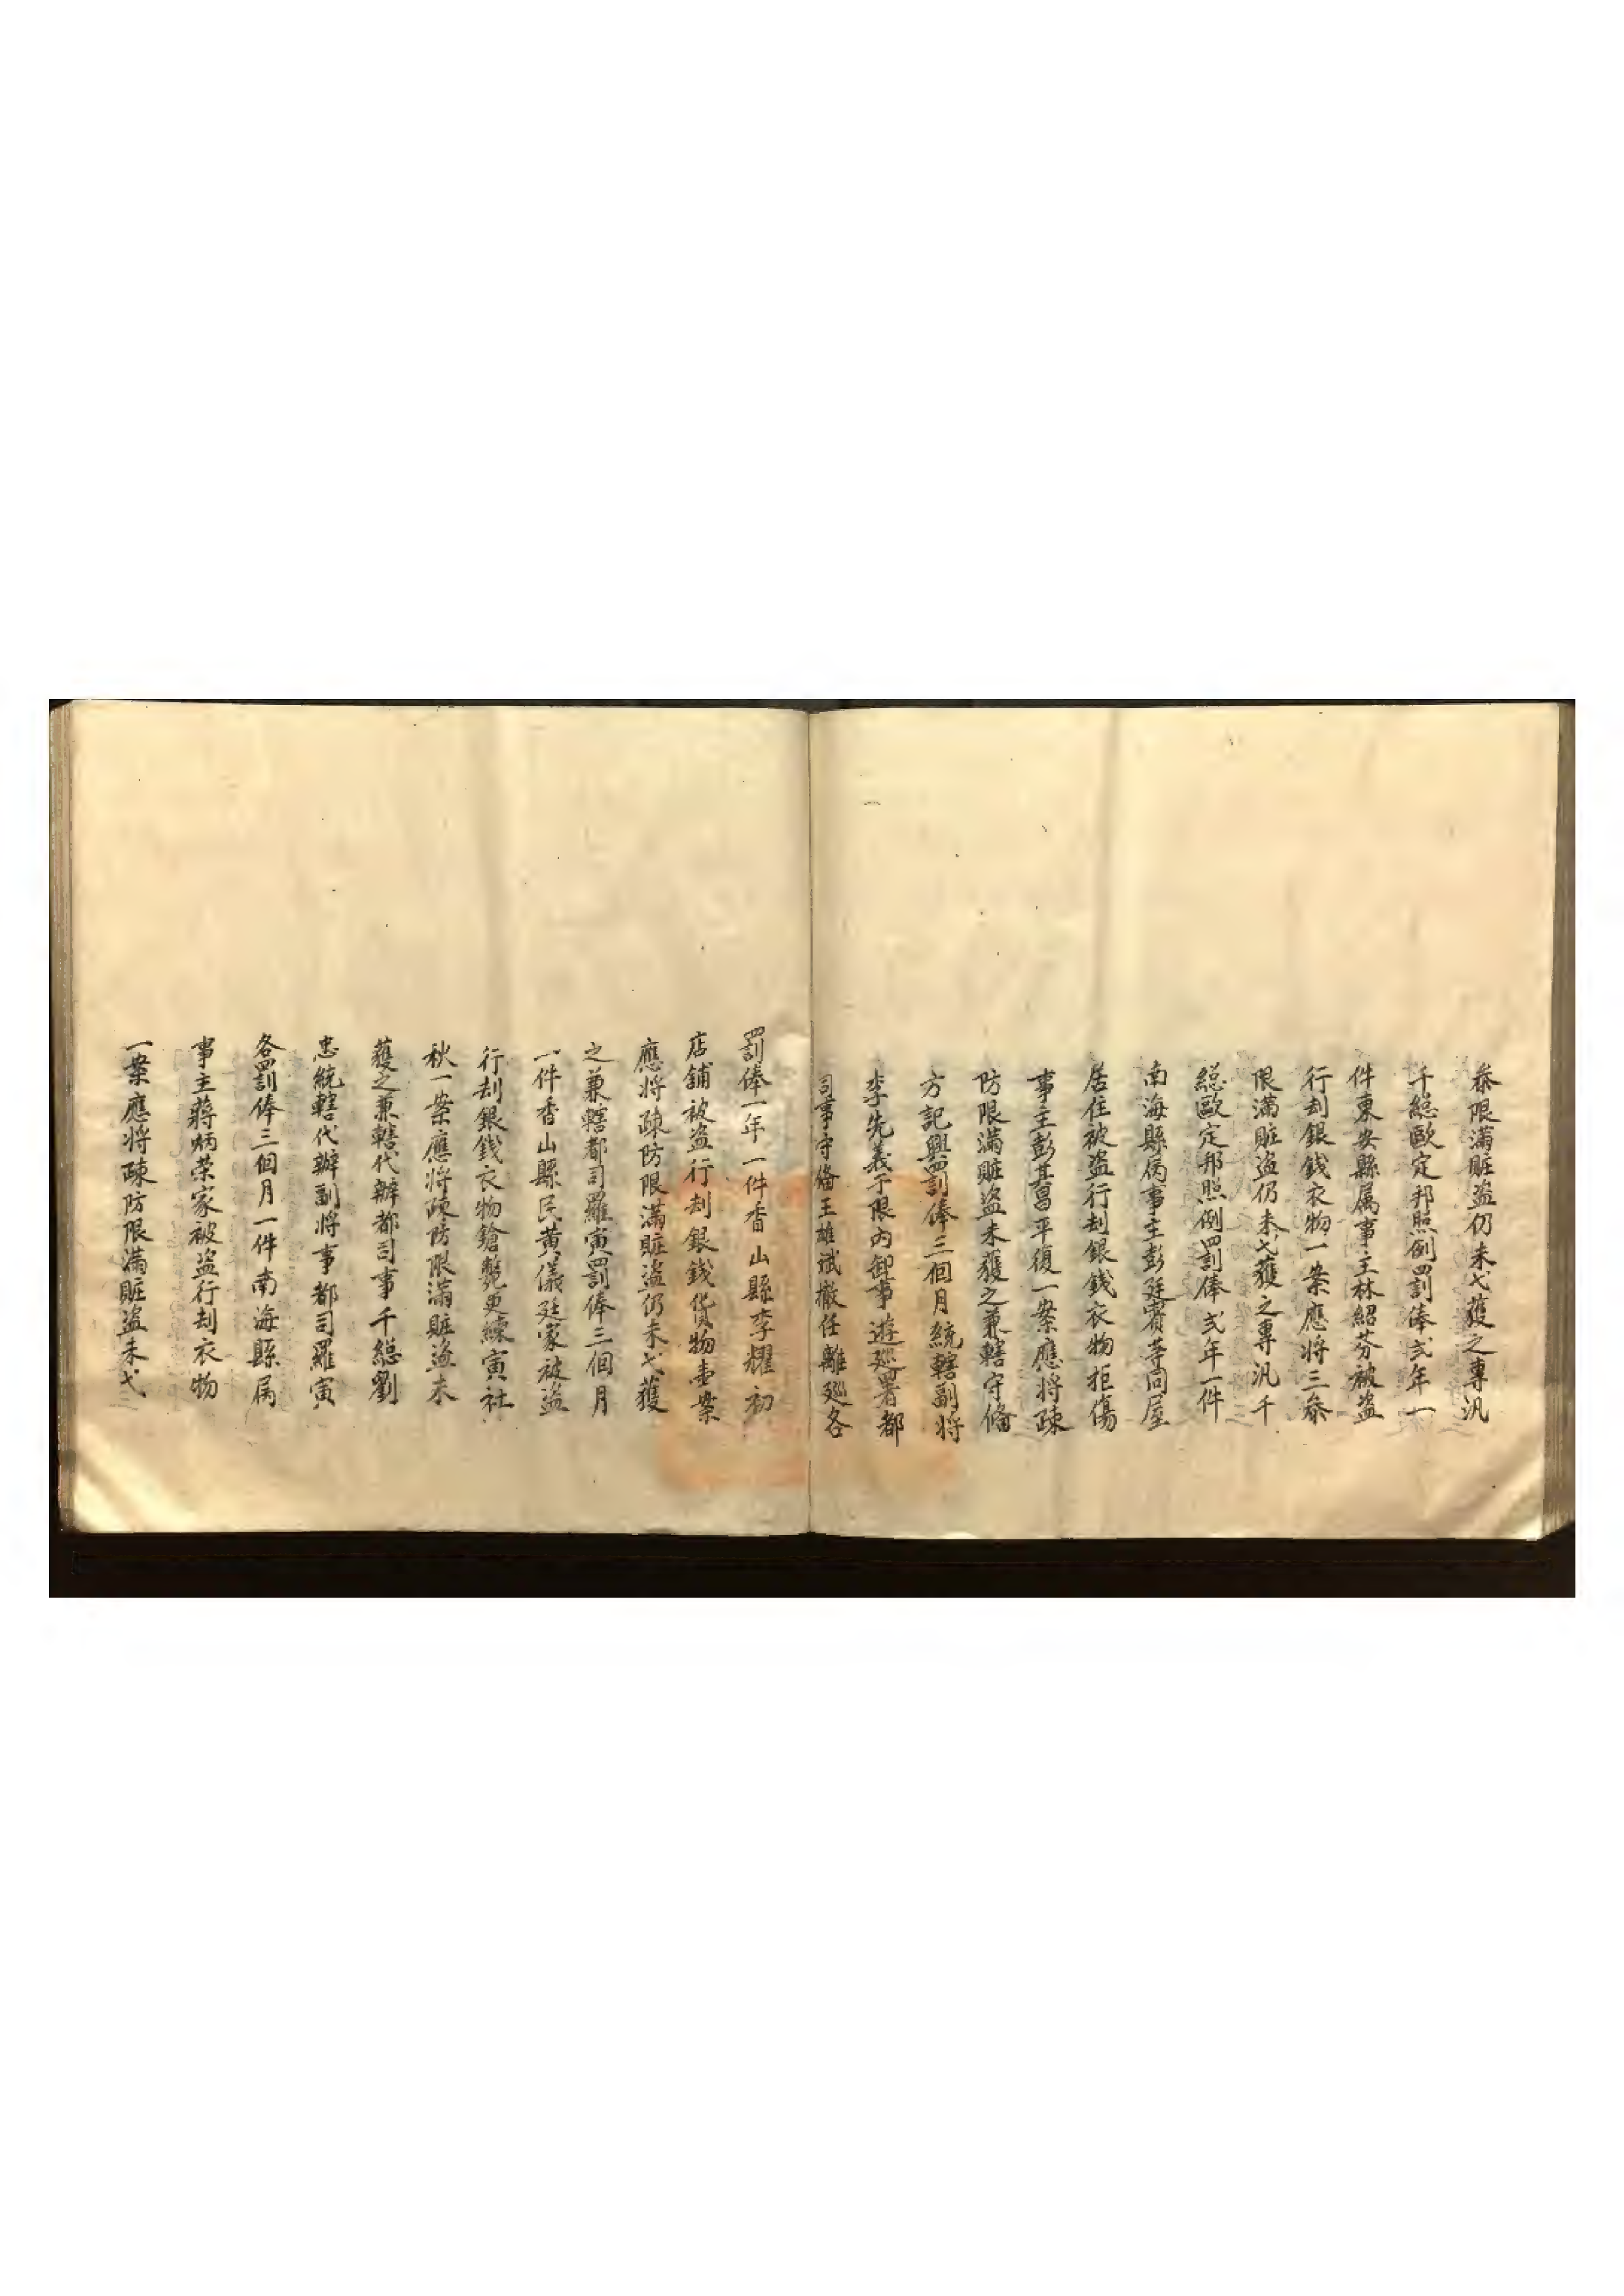 叅限滿賍盜仍未弋獲之專汎
千總歐定邦照例罰俸弍年一
件東安縣属事主林紹芬被盜
行刦銀錢衣物一案應将三叅
限滿賍盜仍未弋獲之專汎千
總歐定邦照例罰俸弍年一件
南海縣属事主彭廷賓等同屋
居住被盜行刦銀錢衣物拒傷
事主彭其昌平復一案應将疎
防限滿賍盜未獲之兼轄守俻
方記興罰俸三個月統轄副将
李先義于限內卸事遊廵署都
司事守俻王雄斌撤任離廵各
罰俸一年一件香山縣李耀初
店舖被盜行刦銀錢貨物壹案
應将疎防限滿賍盜仍未弋獲
之兼轄都司羅寅罰俸三個月
一件香山縣民黄儀廷家被盜
行刦銀錢衣物鎗斃更練寅社
秋一案應将疎防限滿賍盜未
獲之兼轄代辦都司事千總劉
忠統轄代辦副将事都司羅寅
各罰俸三個月一件南海縣属
事主蔣炳荣家被盜行刦衣物
一案應将疎防限滿賍盜未弋